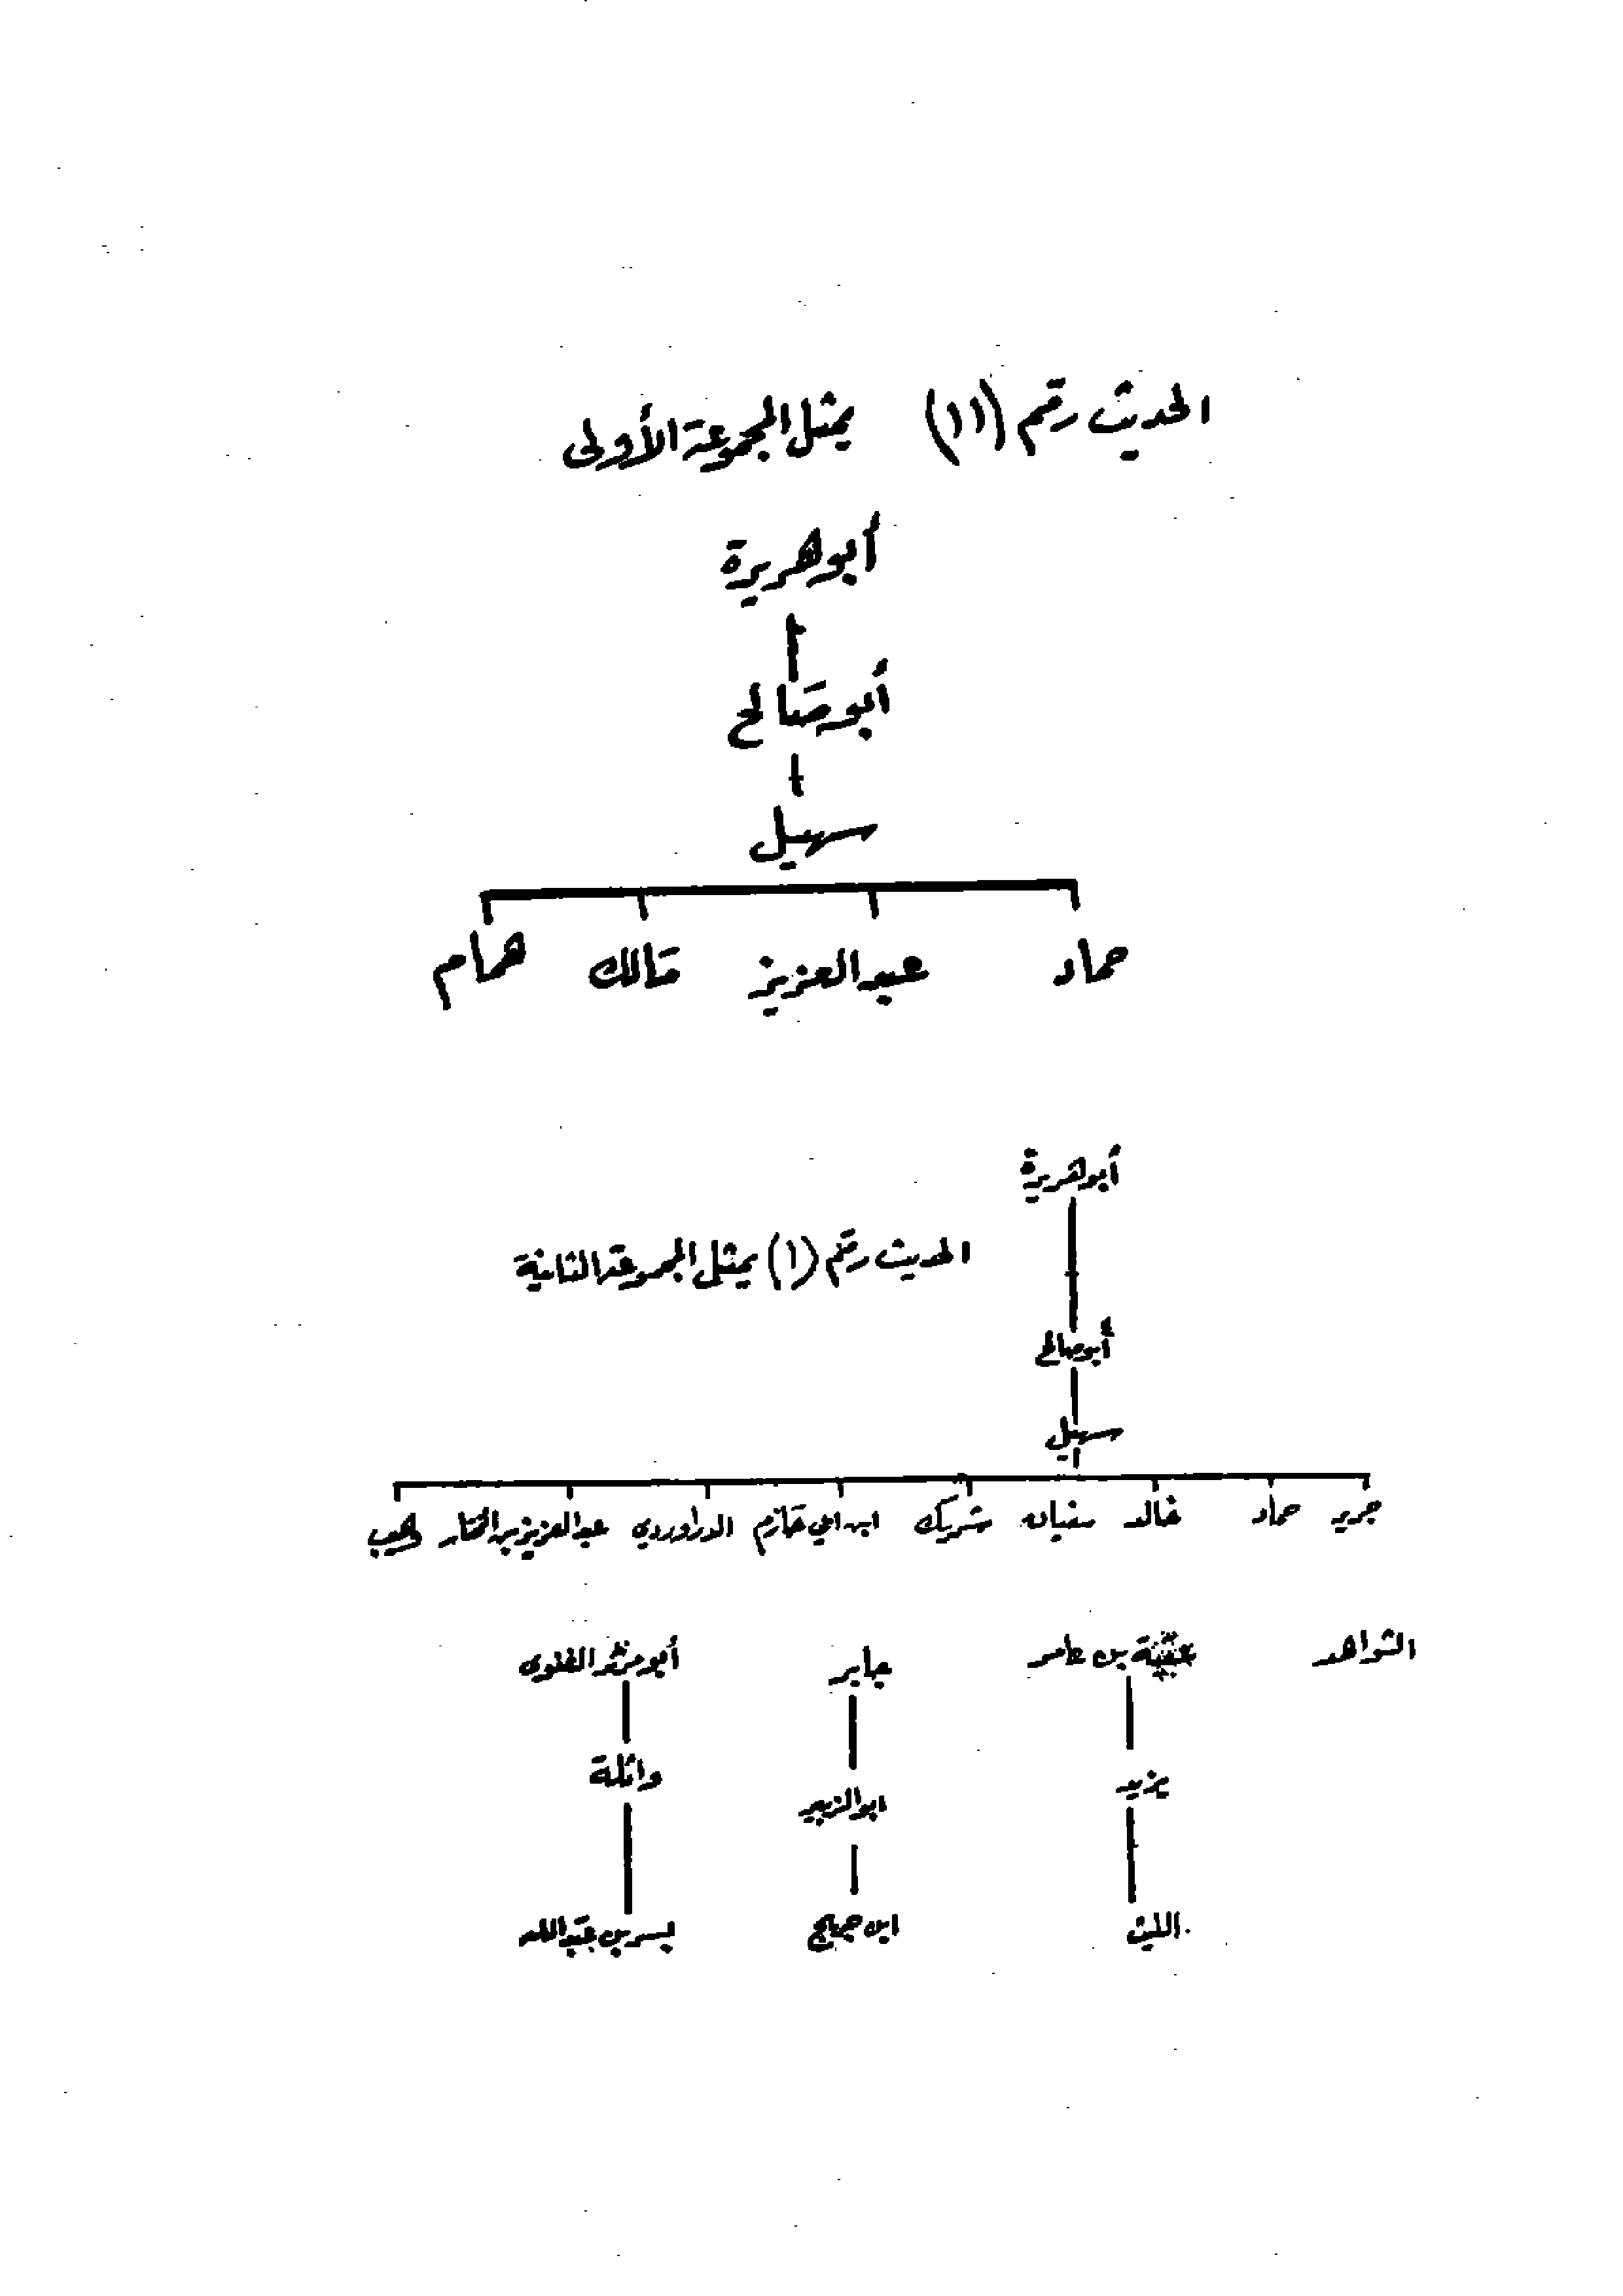 الحديث رقم (١١) يمثل المجموعة الأولى
أبو هريرة
أبو صالح
سهيل
حماد عبد العزيز مالك همام
أبو هريرة
الحديث رقم (١) يمثل المجموعة الثانية
أبو صالح
سهيل
جرير حماد خالد سفيان شريك ابن ابي حازم الدراوردي عبد العزيز بن المختار
الشواهد عقبة بن عامر جابر أبو مرثد الغنوي
يزيد ابو الزبير واثلة
الليث ابن جريج بسر بن عبد الله